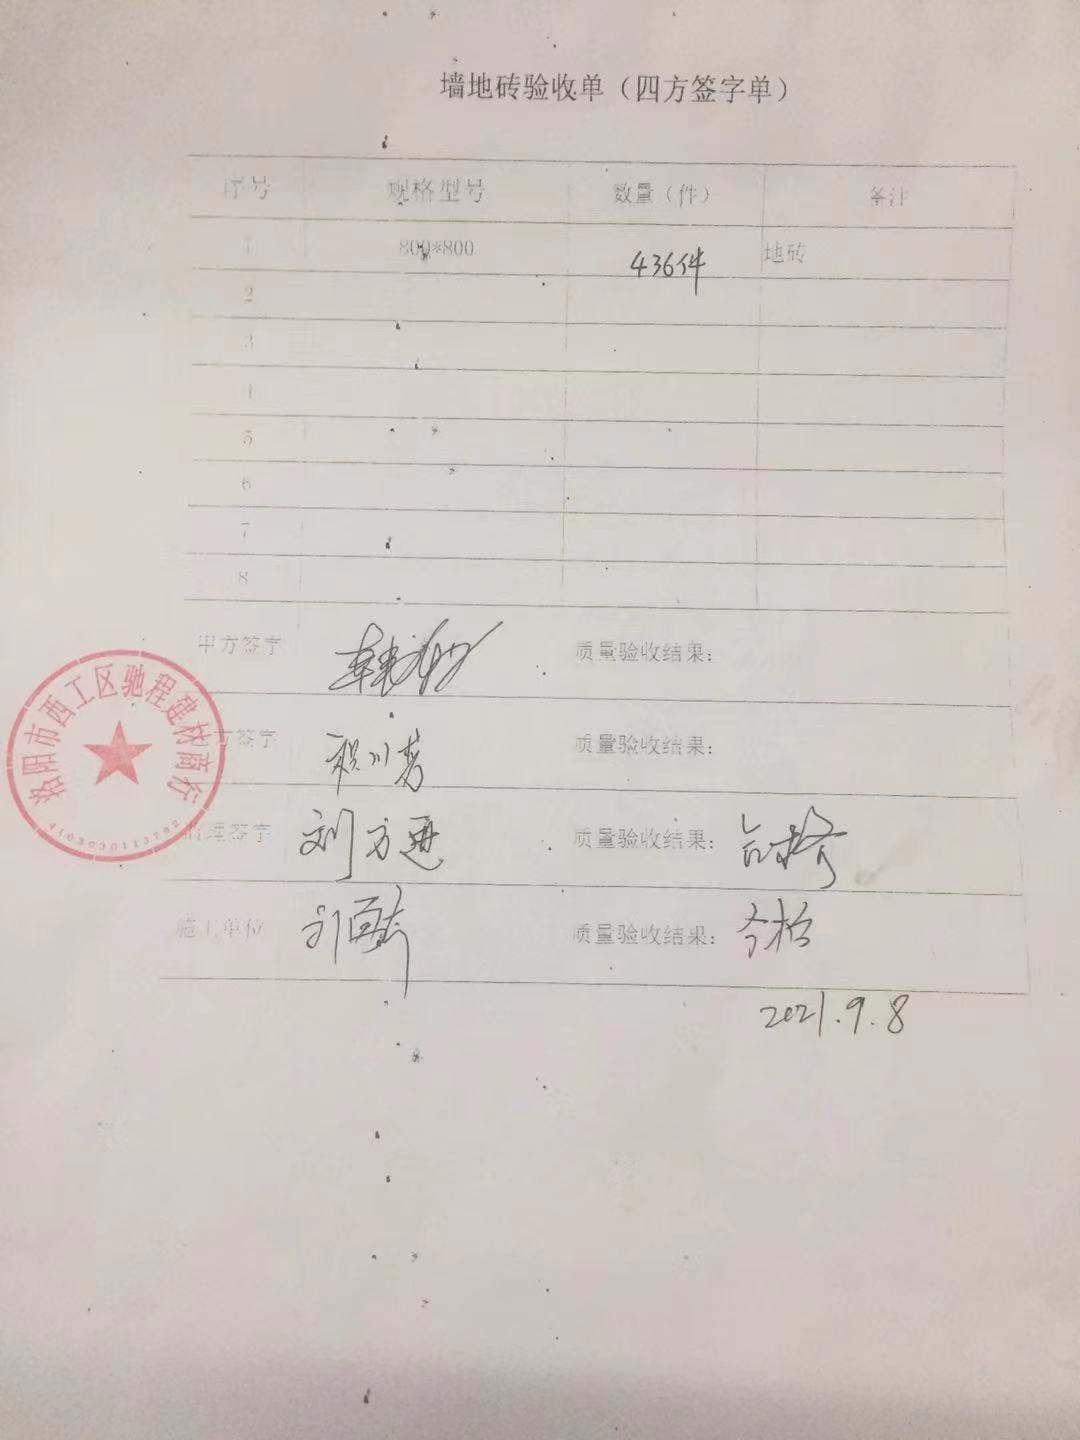 墙地砖验收单（四方签字单）
序号 规格型号 数量（件） 备注
1 800*800 436件 地砖
2
3
4
5
6
7
8
甲方签字 质量验收结果：
乙方签字 质量验收结果：
监理签字 刘方 质量验收结果： 合格
施工单位 质量验收结果： 合格
2021.9.8
洛阳市西工区驰程建材商行